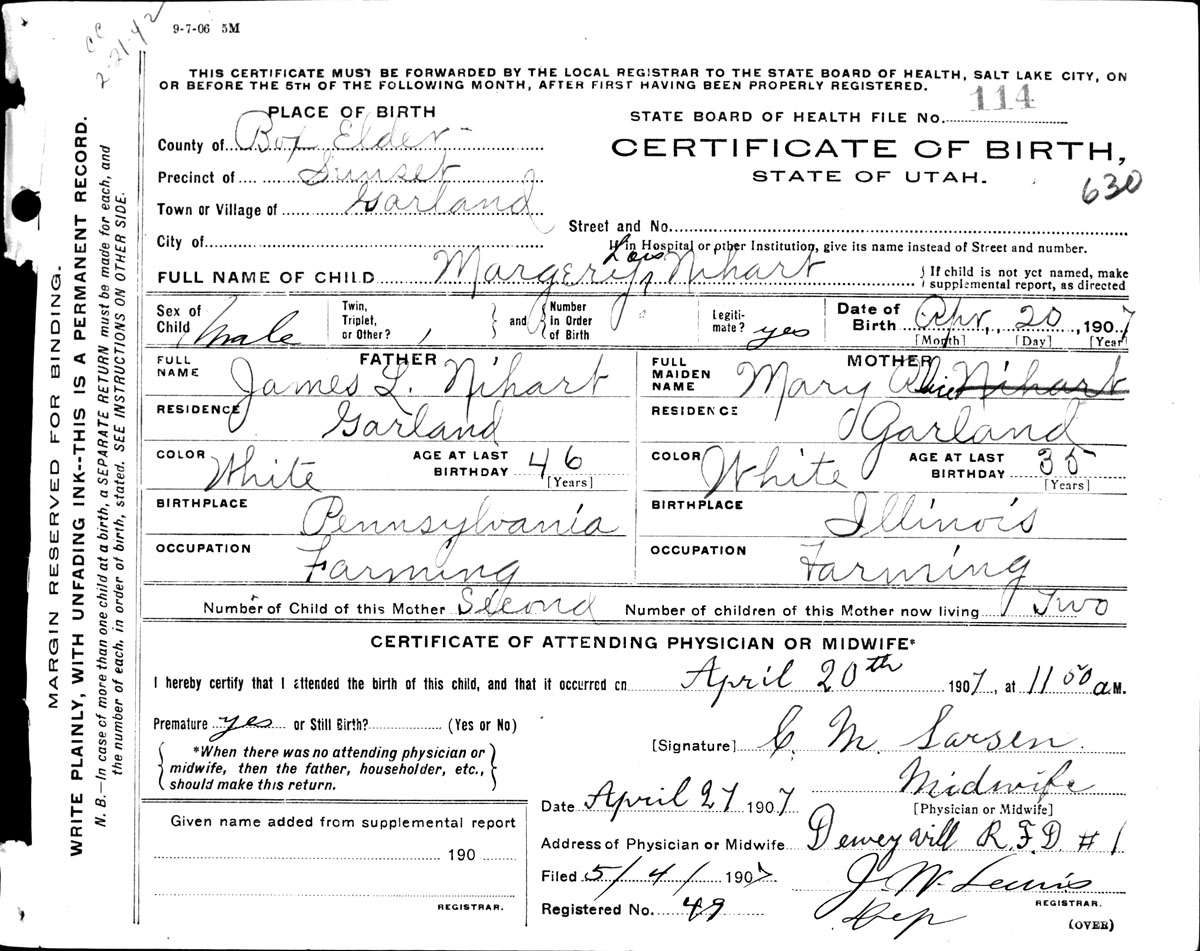 CC
2-21-42
9-7-06 5M
THIS CERTIFICATE MUST BE FORWARDED BY THE LOCAL REGISTRAR TO THE STATE BOARD OF HEALTH, SALT LAKE CITY, ON
OR BEFORE THE 5TH OF THE FOLLOWING MONTH, AFTER FIRST HAVING BEEN PROPERLY REGISTERED.
114
PLACE OF BIRTH
STATE BOARD OF HEALTH FILE No.
County of Box Elder
CERTIFICATE OF BIRTH,
Precinct of Sunset
STATE OF UTAH.
630
Town or Village of Garland
Street and No.
City of
If in Hospital or other Institution, give its name instead of Street and number.
Lois
FULL NAME OF CHILD Margery Nihart
If child is not yet named, make
supplemental report, as directed
Sex of Child male
Twin, Triplet, or Other?
and Number in Order of Birth
Legiti-mate? yes
Date of Birth Apr, 20, 1907
[Month] [Day] [Year]
FATHER
FULL NAME James L. Nihart
MOTHER
FULL MAIDEN NAME Mary Alice Nihart
RESIDENCE Garland
RESIDENCE Garland
COLOR White AGE AT LAST BIRTHDAY 46 [Years]
COLOR White AGE AT LAST BIRTHDAY 35 [Years]
BIRTHPLACE Pennsylvania
BIRTHPLACE Illinois
OCCUPATION Farming
OCCUPATION Farming
Number of Child of this Mother Second Number of children of this Mother now living Two
CERTIFICATE OF ATTENDING PHYSICIAN OR MIDWIFE*
I hereby certify that I attended the birth of this child, and that it occurred on April 20th 1907, at 11 50 a.M.
Premature yes or Still Birth? (Yes or No)
*When there was no attending physician or
midwife, then the father, householder, etc.,
should make this return.
[Signature] C. M. Larsen
Midwife
[Physician or Midwife]
Date April 27 1907
Given name added from supplemental report
190
REGISTRAR.
Address of Physician or Midwife Deweyvill R.F.D. #1
Filed 5/4/ 1907 J. W. Lewis
REGISTRAR.
Registered No. 49 Dep
(OVER)
MARGIN RESERVED FOR BINDING.
WRITE PLAINLY, WITH UNFADING INK--THIS IS A PERMANENT RECORD.
N. B.—In case of more than one child at a birth, a SEPARATE RETURN must be made for each, and
the number of each, in order of birth, stated. SEE INSTRUCTIONS ON OTHER SIDE.